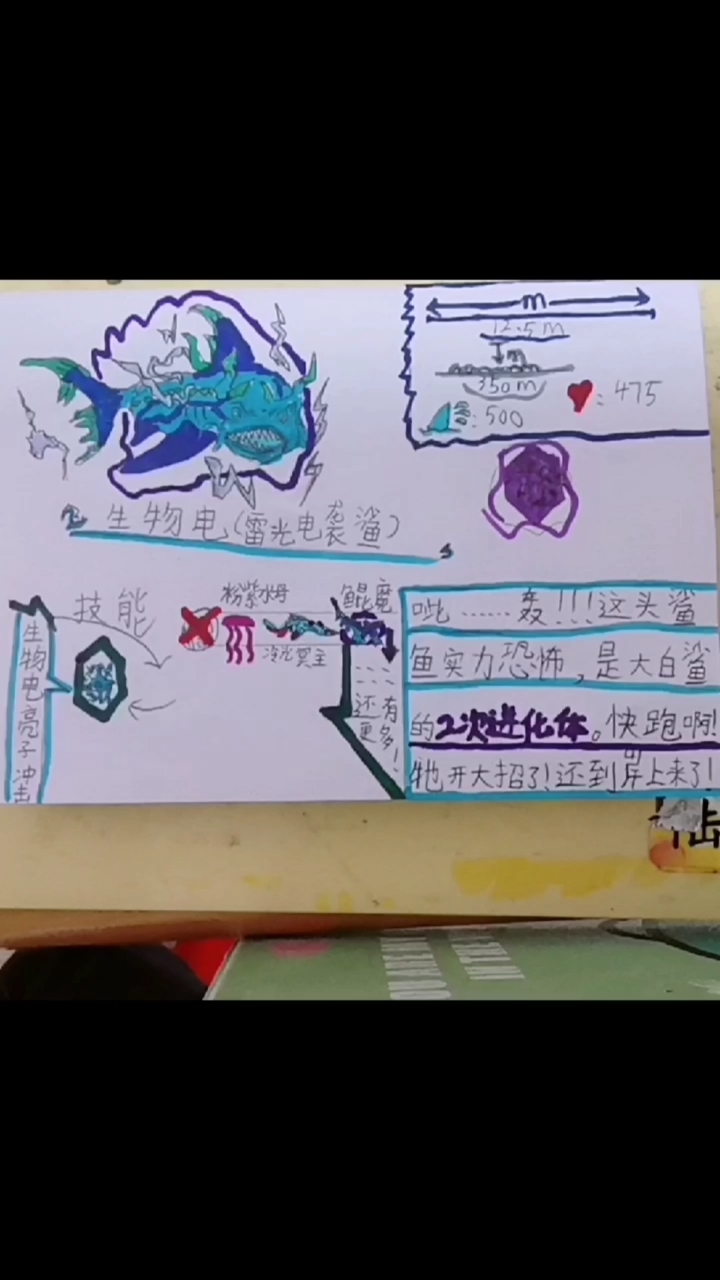 m
12.5m
m
350m
:475
:500
生物电(雷光电袭鲨)
技能
粉紫水母
鲲魔
冷光冥主
生物电亮子冲击
还有更多!
呲……轰!!!这头鲨
鱼实力恐怖,是大白鲨
的2次进化体。快跑啊!
牠开大招了!还到岸上来了!
击